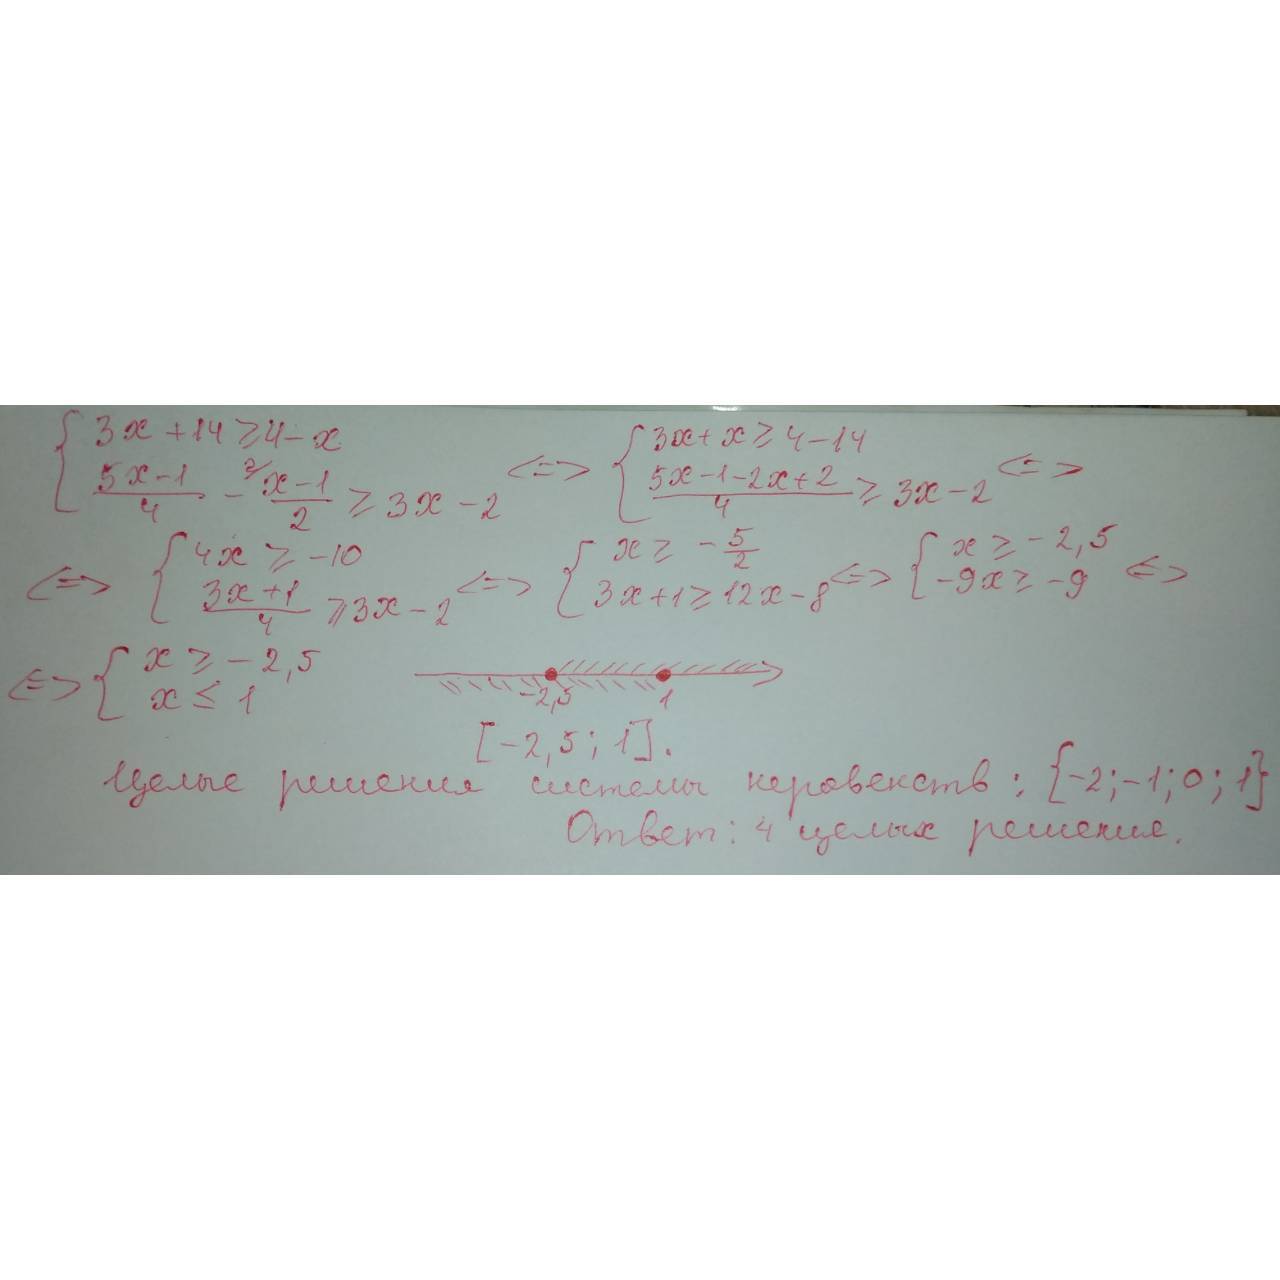 { 3x + 14 ≥ 4 - x
(5x - 1)/4 - ²⁄(x - 1)/2 ≥ 3x - 2 <=> { 3x + x ≥ 4 - 14
(5x - 1 - 2x + 2)/4 ≥ 3x - 2 <=>
<=> { 4x ≥ -10
(3x + 1)/4 ≥ 3x - 2 <=> { x ≥ - 5/2
3x + 1 ≥ 12x - 8 <=> { x ≥ - 2,5
-9x ≥ -9 <=>
<=> { x ≥ - 2,5
x ≤ 1
-2,5 1
[-2,5; 1].
Целые решения системы неравенств: {-2; -1; 0; 1}
Ответ: 4 целых решения.